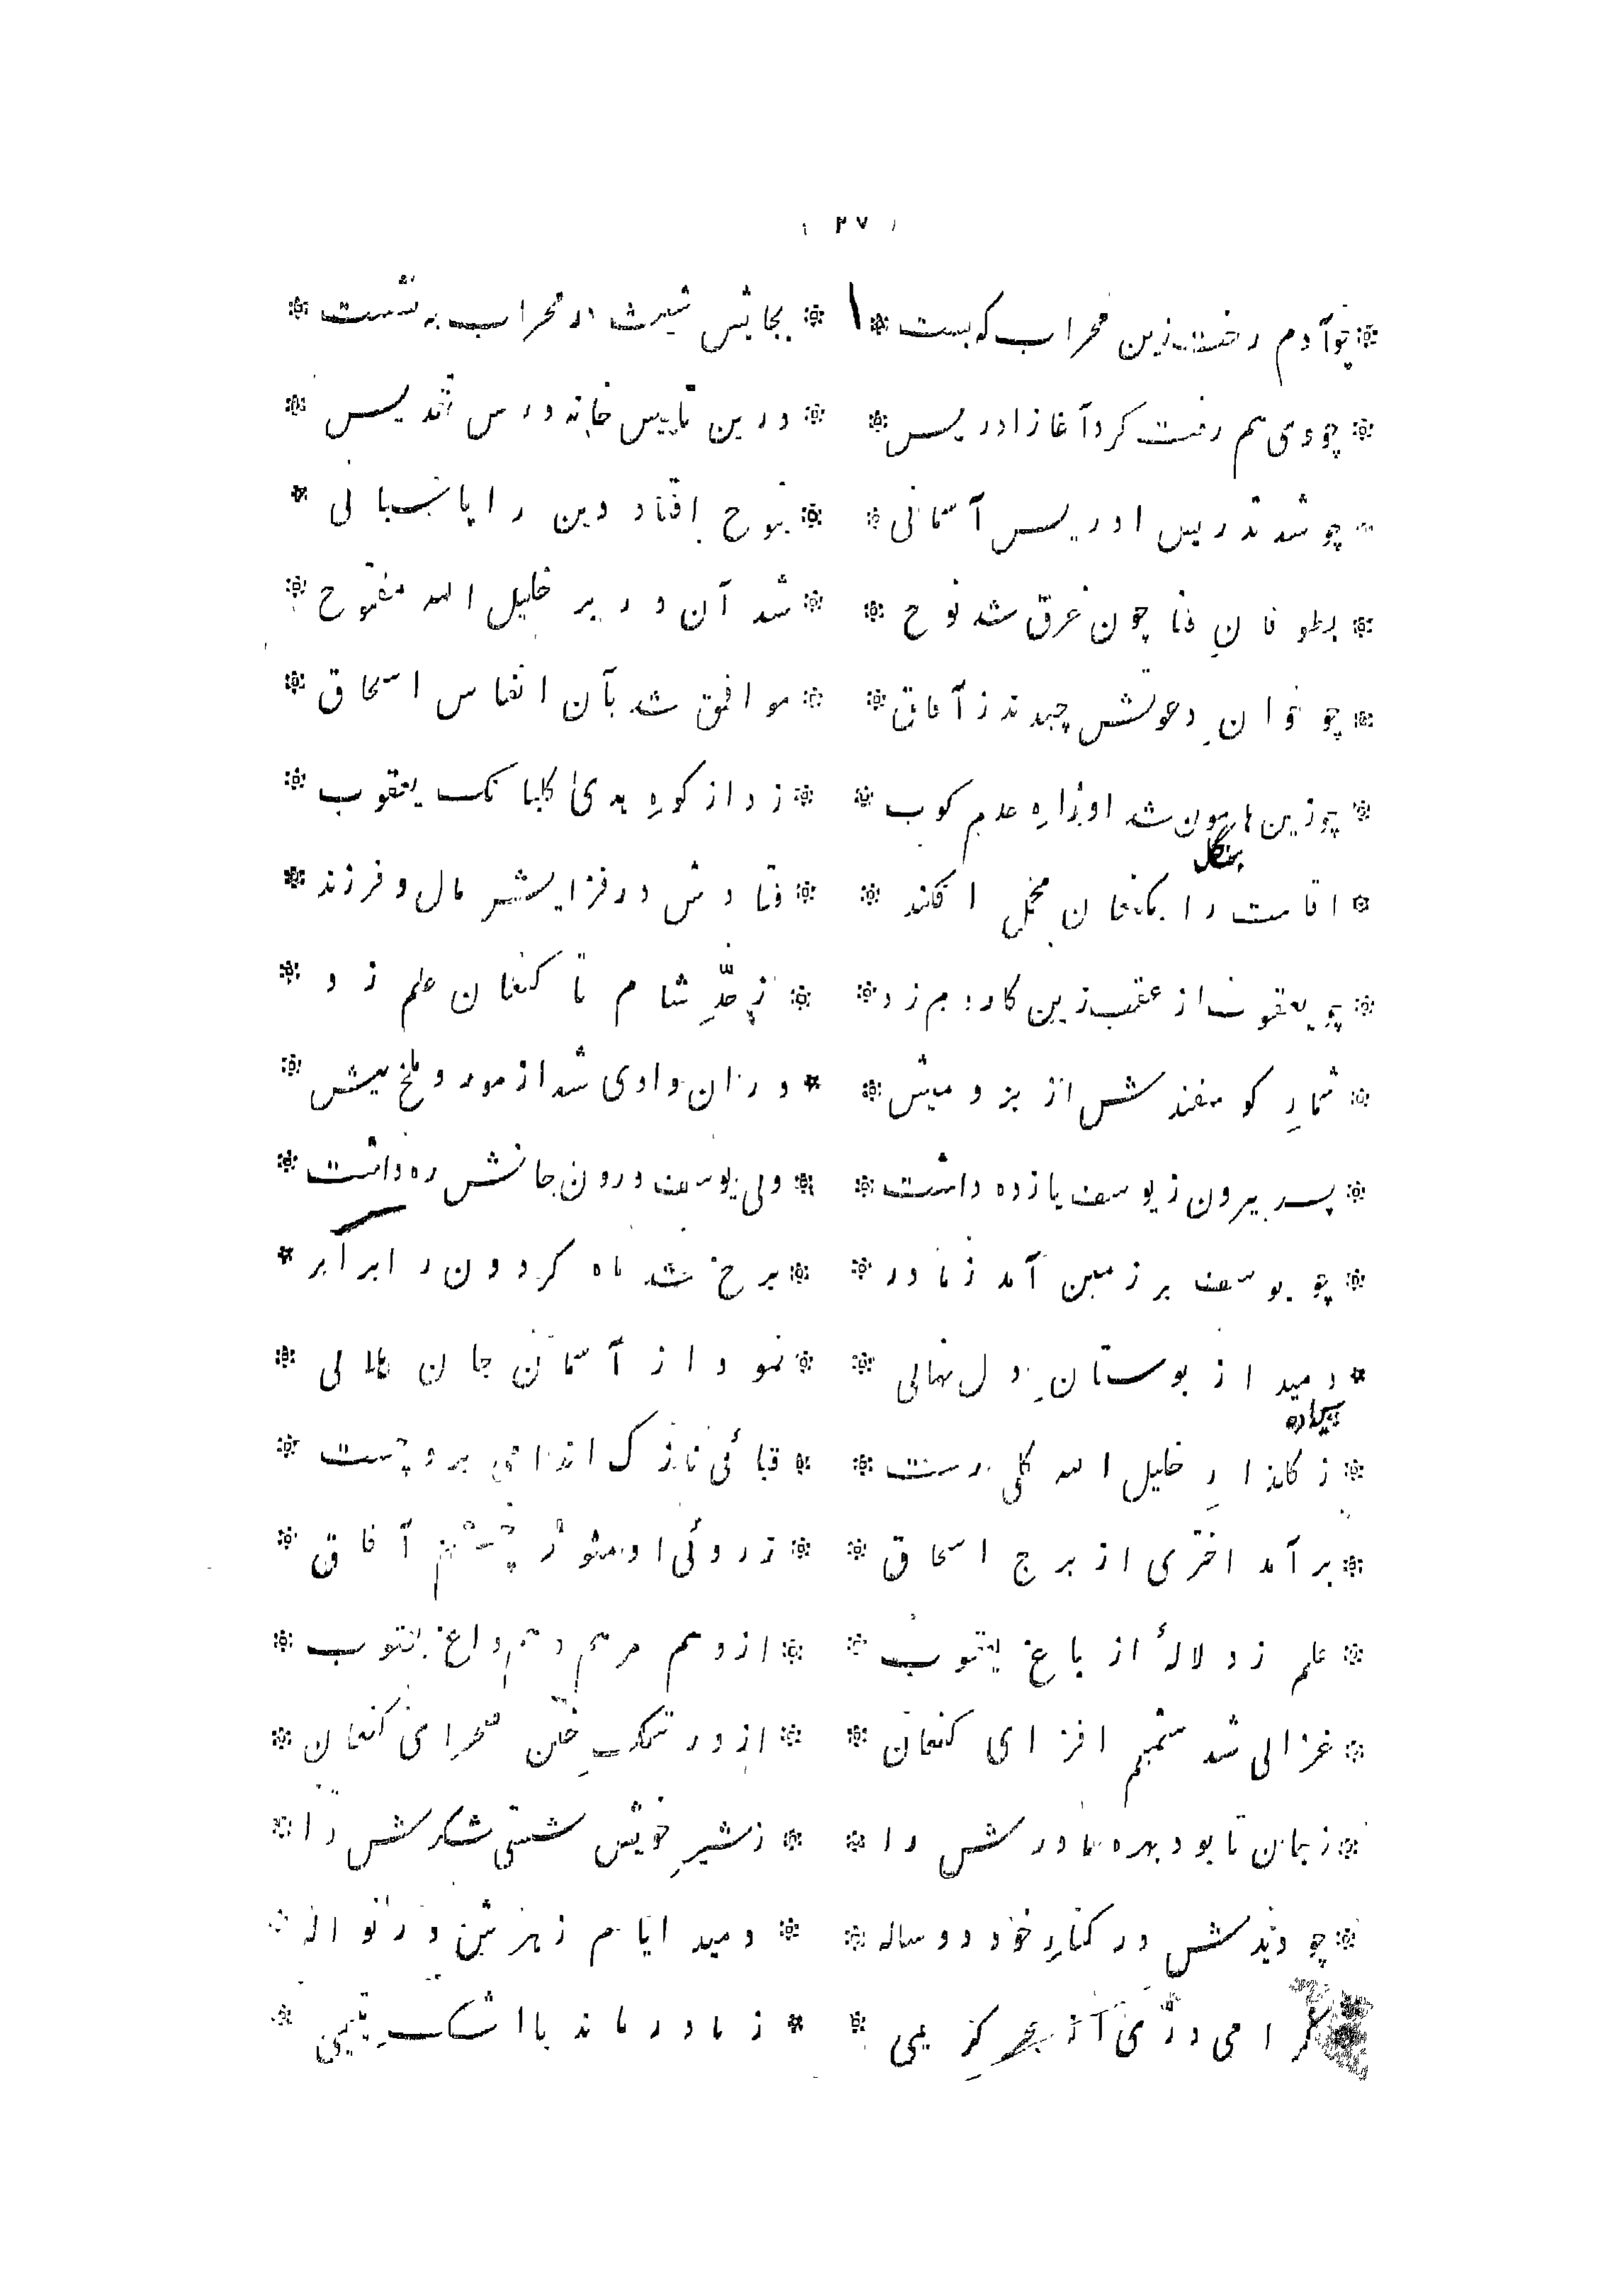 ( ۲۷ )
چو آدم رخت زین محراب گه بست * بجایش شیث در محراب بنشست
چو وی هم رفت کرد آغاز ادریس * درین تلبیس خانه درس تقدیس
چو شد تدریس ادریس آسمانی * بنوح افتاد دین را پاسبانی
بطوفان فنا چون غرق شد نوح * شد آن در بر خلیل الله مفتوح
چو خوان دعوتش چیدند ز آفاق * موافق شد بآن انفاس اسحاق
چو زین هامون شد او راه عدم کوب * زد از کوه هدی گلبانگ یعقوب
بتگل
اقامت را بکنعان محمل افکند * فتادش در فزایش مال و فرزند
چو یعقوب از عقب زین کار دم زد * ز حدّ شام تا کنعان علم زد
شمار گوسفندش از بز و میش * در ان وادی شد از مور و ملخ بیش
پسر بیرون ز یوسف یازده داشت * ولی یوسف درون جانش ره داشت
چو یوسف بر زمین آمد ز مادر * برخ شد ماه گردون را برابر
دمید از بوستان دل نهالی * نمود از آسمان جان هلالی
ز گلزار خلیل الله گلی رست * قبائی نازک اندامی برو چست
برآمد اختری از برج اسحاق * ز روئی او منور چشم آفاق
علم زد لالهٔ از باغ یعقوب * ازو هم مرهم و هم داغ یعقوب
غزالی شد شمیم افزای کنعان * ازو رشک ختن صحرای کنعان
ز جان تا بود بهره مادرش را * ز شیر خویش شستی شکرش را
چو دیدش در کنار خود دو ساله * دمید ایام زهرش در نواله
گرامی دری از بحر کریمی * ز مادر ماند با اشک یتیمی